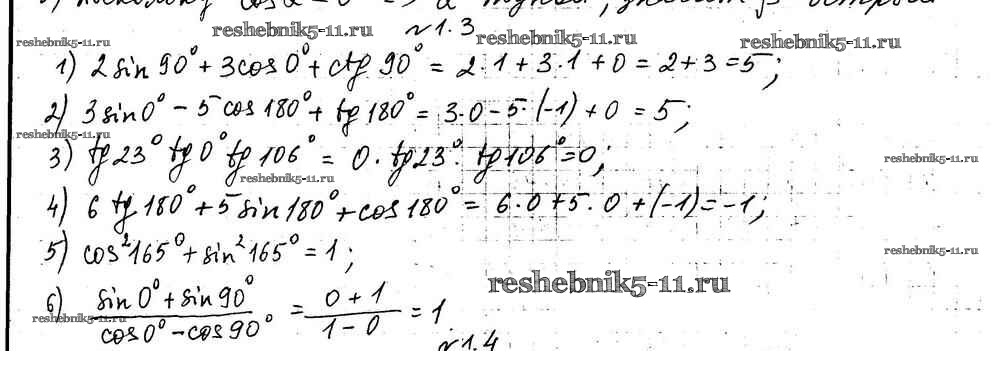 reshebnik5-11.ru
№1.3
reshebnik5-11.ru reshebnik5-11.ru reshebnik5-11.ru
1) 2 sin 90° + 3 cos 0° + ctg 90° = 2·1 + 3·1 + 0 = 2 + 3 = 5;
2) 3 sin 0° − 5 cos 180° + tg 180° = 3·0 − 5·(−1) + 0 = 5;
reshebnik5-11.ru
3) tg 23° tg 0° tg 106° = 0·tg 23°·tg 106° = 0;
reshebnik5-11.ru
reshebnik5-11.ru
4) 6 tg 180° + 5 sin 180° + cos 180° = 6·0 + 5·0 + (−1) = −1;
5) cos² 165° + sin² 165° = 1;
reshebnik5-11.ru
reshebnik5-11.ru
6) (sin 0° + sin 90°) / (cos 0° − cos 90°) = (0 + 1) / (1 − 0) = 1
reshebnik5-11.ru
№1.4